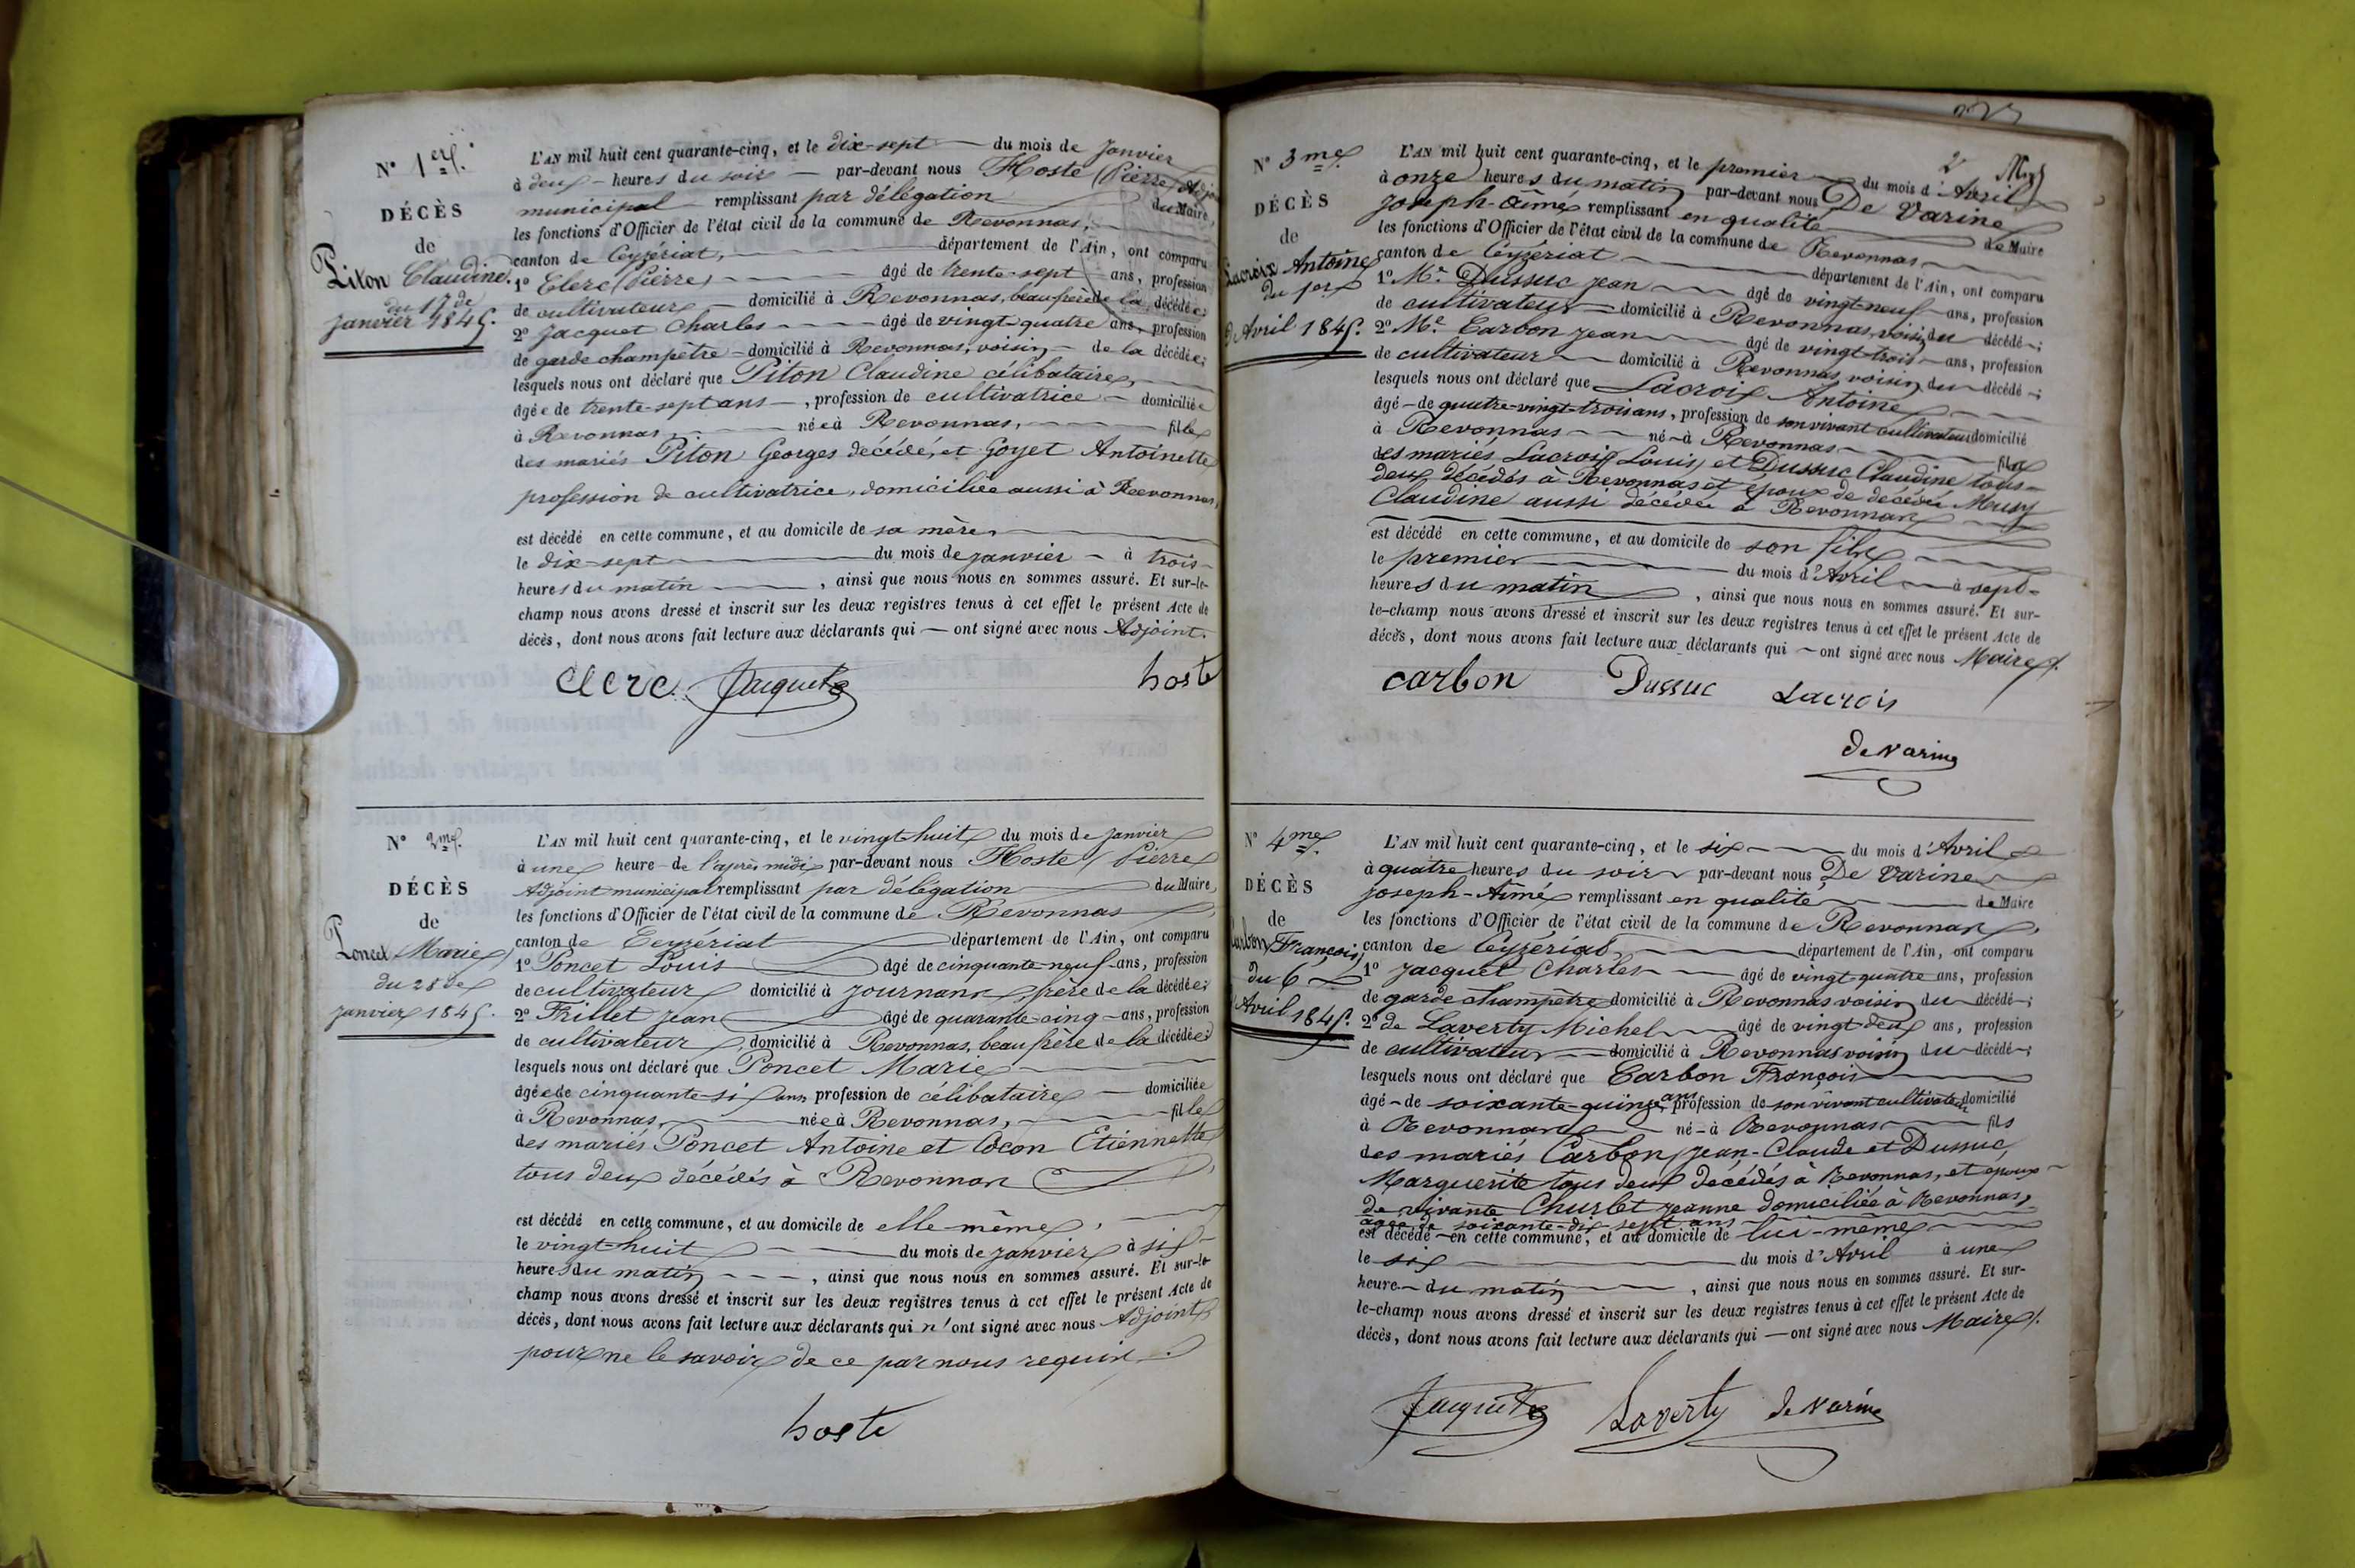 N° 1er.
DÉCÈS
de
Piton Claudine.
du 17 de
janvier 1845.
L'AN mil huit cent quarante-cinq, et le dix-sept du mois de janvier
à deux heures du soir par-devant nous Hoste Pierre Adjoint
municipal remplissant par délégation du Maire,
les fonctions d'Officier de l'état civil de la commune de Revonnas,
canton de Ceyzériat, département de l'Ain, ont comparu
1° Clerc Pierre, âgé de trente-sept ans, profession
de cultivateur domicilié à Revonnas, beau frère de la décédée;
2° Jacquet Charles âgé de vingt-quatre ans, profession
de garde champêtre domicilié à Revonnas, voisin de la décédée;
lesquels nous ont déclaré que Piton Claudine célibataire,
âgée de trente-sept ans, profession de cultivatrice domiciliée
à Revonnas, née à Revonnas, fille
des mariés Piton Georges décédé, et Goyet Antoinette
profession de cultivatrice, domiciliée aussi à Revonnas,
est décédé en cette commune, et au domicile de sa mère,
le dix-sept du mois de janvier à trois
heures du matin, ainsi que nous nous en sommes assuré. Et sur-le-
champ nous avons dressé et inscrit sur les deux registres tenus à cet effet le présent Acte de
décès, dont nous avons fait lecture aux déclarants qui — ont signé avec nous Adjoint.
Clerc. Jacquet hoste
N° 2me.
DÉCÈS
de
Poncet Marie
du 28 de
janvier 1845.
L'AN mil huit cent quarante-cinq, et le vingt-huit du mois de janvier
à une heure de l'après midi par-devant nous Hoste Pierre
Adjoint municipal remplissant par délégation du Maire,
les fonctions d'Officier de l'état civil de la commune de Revonnas,
canton de Ceyzériat département de l'Ain, ont comparu
1° Poncet Louis âgé de cinquante-neuf ans, profession
de cultivateur domicilié à Journans frère de la décédée;
2° Frillet Jean âgé de quarante-cinq ans, profession
de cultivateur, domicilié à Revonnas, beau frère de la décédée;
lesquels nous ont déclaré que Poncet Marie
âgée de cinquante-six ans profession de célibataire domiciliée
à Revonnas, née à Revonnas, fille
des mariés Poncet Antoine et Cocon Etiennette
tous deux décédés à Revonnas,
est décédé en cette commune, et au domicile de elle-même,
le vingt-huit du mois de janvier à six
heures du matin, ainsi que nous nous en sommes assuré. Et sur-le-
champ nous avons dressé et inscrit sur les deux registres tenus à cet effet le présent Acte de
décès, dont nous avons fait lecture aux déclarants qui n'ont signé avec nous Adjoint
pour ne le savoir de ce par nous requis.
hoste
2
N° 3me.
DÉCÈS
de
Lacroix Antoine
du 1er
d'Avril 1845.
L'AN mil huit cent quarante-cinq, et le premier du mois d'Avril
à onze heures du matin par-devant nous De Varine
Joseph-Aimé remplissant en qualité de Maire
les fonctions d'Officier de l'état civil de la commune de Revonnas
canton de Ceyzériat département de l'Ain, ont comparu
1° Mr. Dussuc Jean âgé de vingt-neuf ans, profession
de cultivateur domicilié à Revonnas, voisin du décédé;
2° Mr. Carbon Jean âgé de vingt-trois ans, profession
de cultivateur domicilié à Revonnas voisin du décédé;
lesquels nous ont déclaré que Lacroix Antoine
âgé de quatre-vingt-trois ans, profession de son vivant cultivateur domicilié
à Revonnas né à Revonnas fils
des mariés Lacroix Louis, et Dussuc Claudine tous
deux décédés à Revonnas et époux de décédée Musy
Claudine aussi décédée à Revonnas
est décédé en cette commune, et au domicile de son fils
le premier du mois d'Avril à sept
heures du matin, ainsi que nous nous en sommes assuré. Et sur-
le-champ nous avons dressé et inscrit sur les deux registres tenus à cet effet le présent Acte de
décès, dont nous avons fait lecture aux déclarants qui — ont signé avec nous Maire.
carbon Dussuc Lacroix
de Varine
N° 4me.
DÉCÈS
de
Carbon François,
du 6
d'Avril 1845.
L'AN mil huit cent quarante-cinq, et le six du mois d'Avril
à quatre heures du soir par-devant nous De Varine
Joseph-Aimé remplissant en qualité de Maire
les fonctions d'Officier de l'état civil de la commune de Revonnas,
canton de Ceyzériat, département de l'Ain, ont comparu
1° Jacquet Charles âgé de vingt-quatre ans, profession
de garde champêtre domicilié à Revonnas voisin du décédé;
2° de Laverty Michel âgé de vingt-deux ans, profession
de cultivateur domicilié à Revonnas voisin du décédé;
lesquels nous ont déclaré que Carbon François
âgé de soixante-quinze ans profession de son vivant cultivateur domicilié
à Revonnas né à Revonnas fils
des mariés Carbon Jean-Claude et Dussuc,
Marguerite tous deux décédés à Revonnas, et époux
de vivante Churlet Jeanne domiciliée à Revonnas,
âgée de soixante-dix-sept ans
est décédé en cette commune, et au domicile de lui-même
le six du mois d'Avril à une
heure du matin, ainsi que nous nous en sommes assuré. Et sur-
le-champ nous avons dressé et inscrit sur les deux registres tenus à cet effet le présent Acte de
décès, dont nous avons fait lecture aux déclarants qui — ont signé avec nous Maire.
Jacquet Laverty de Varine